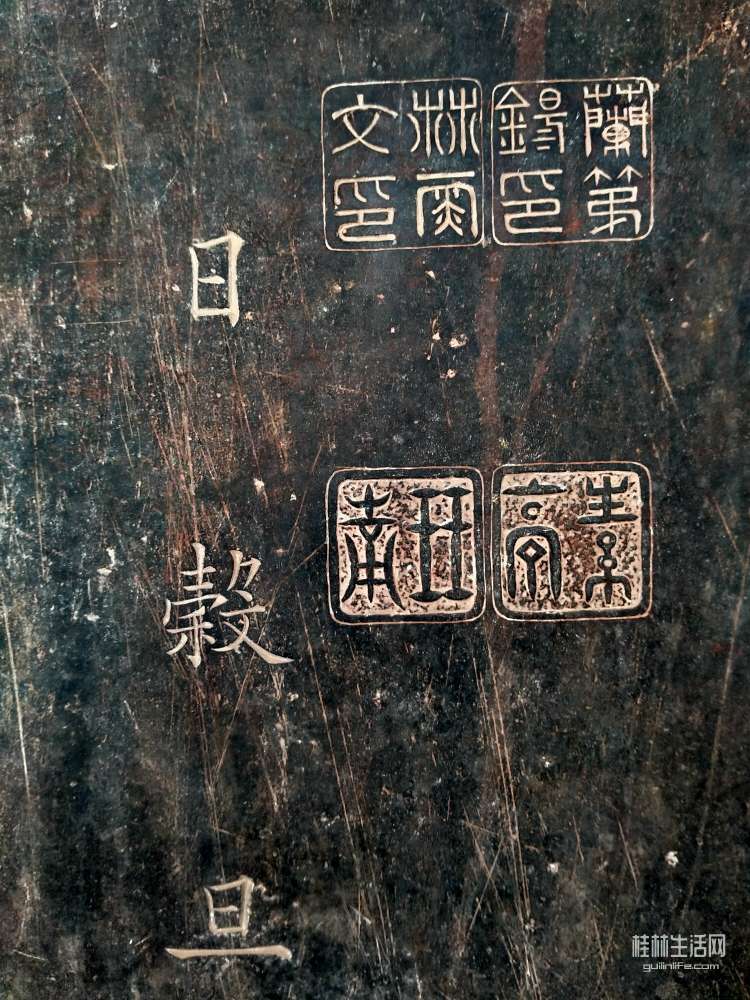 蘭第錫印
素亭
林雨文印
南
日穀旦
桂林生活网
guilinlife.com